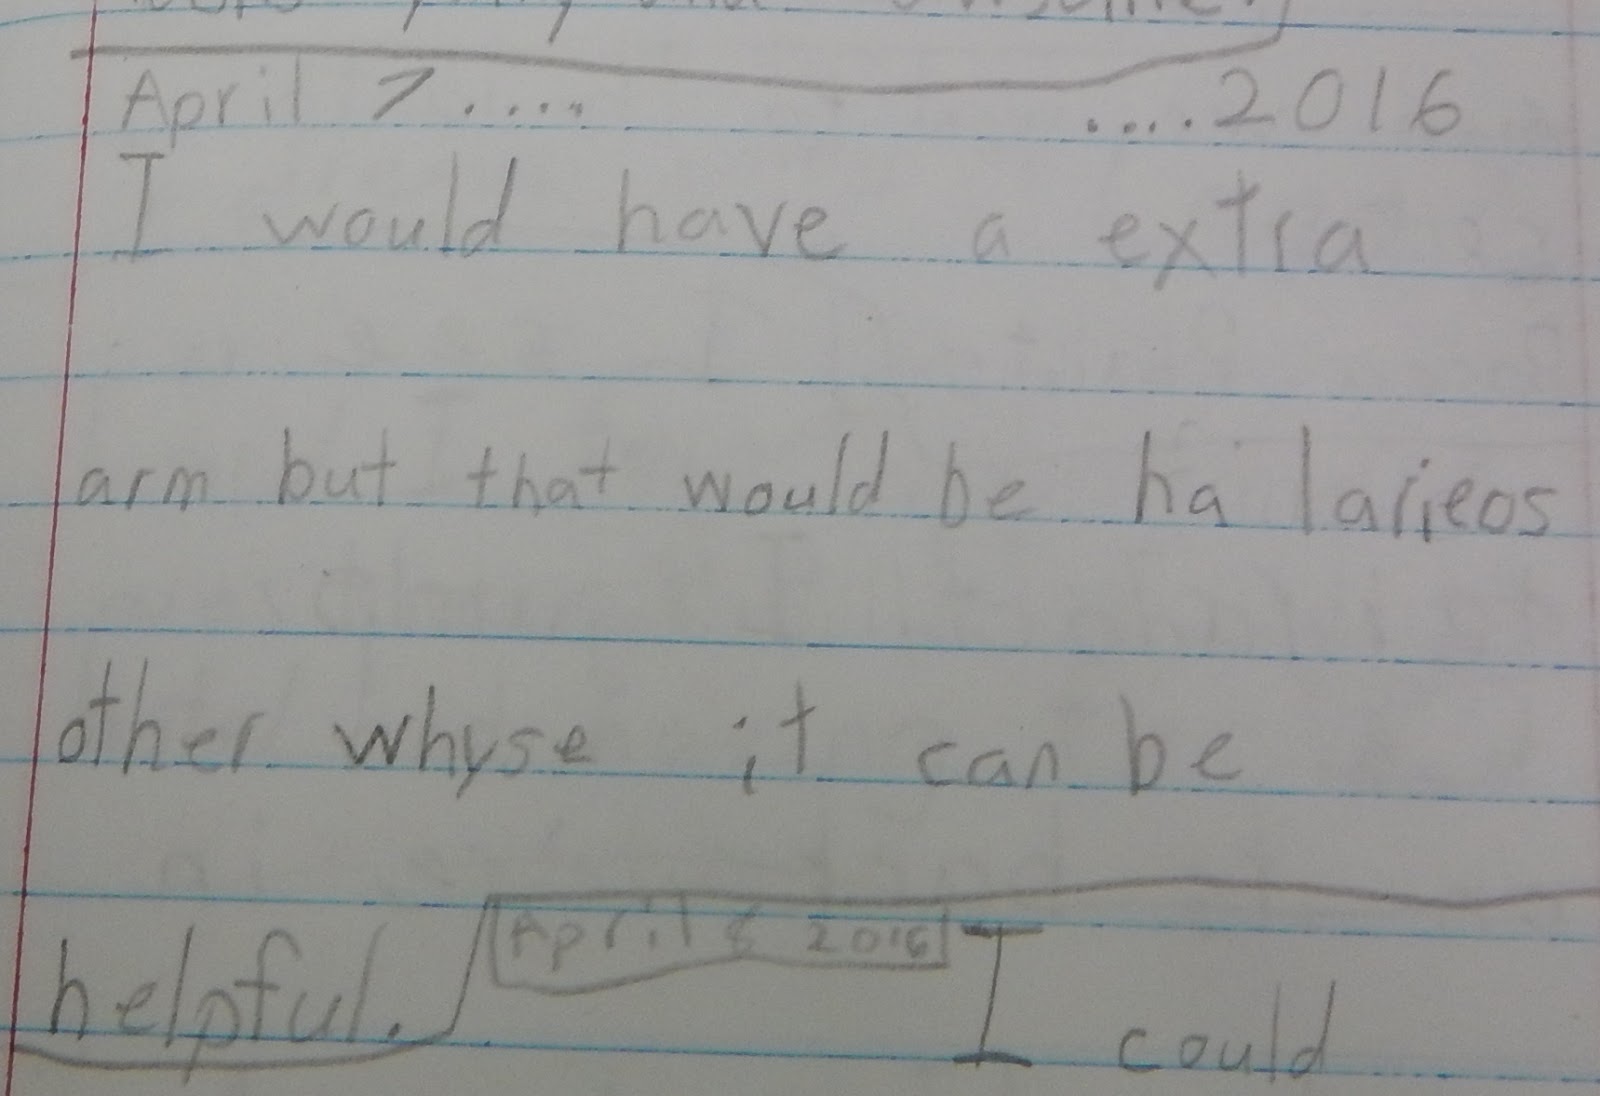 April 7..... ....2016
I would have a extra
arm but that would be ha larieos
other whyse it can be
helpful. April 8 2016 I could